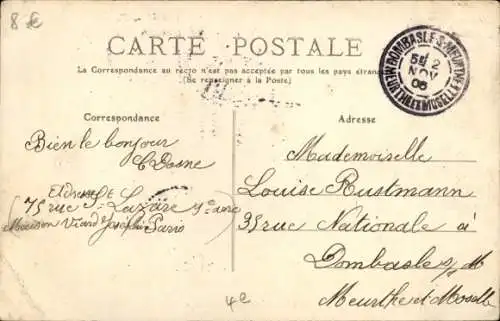 8 €
CARTE POSTALE
La Correspondance au recto n'est pas acceptée par tous les pays étran
(Se renseigner à la Poste.)
DOMBASLE-S-MEURTHE
MEURTHE ET MOSELLE
2
NOV
06
Correspondance
Adresse
Bien le bonjour
Adresse
75 rue St Lazare
Maison Viard Joseph Paris
Mademoiselle
Louise Rustmann
35 rue Nationale à
Dombasle s/ M
Meurthe et Moselle
4e